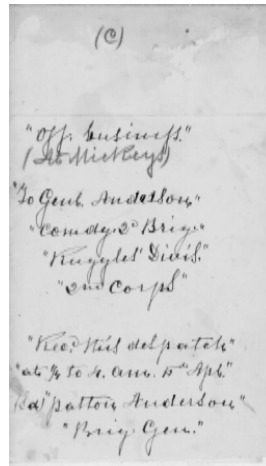 (C)
"Off. business."
(At Mickeys)
"To Genl. Anderson"
"Comdg. 2d Brig."
"Ruggles' Divis."
"2nd Corps"
"Recd. this despatch"
"at ¼ to 4. am. 5th Apl."
(Sd) "Patton Anderson"
"Brig. Gen."